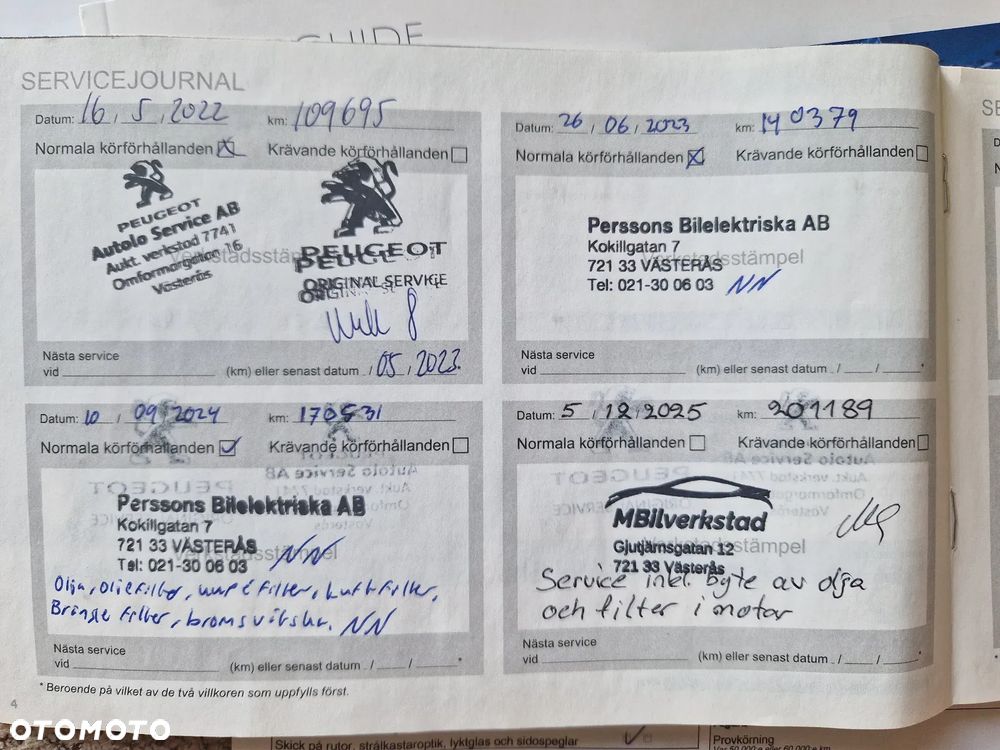 GUIDE
SERVICEJOURNAL
Datum: 16 / 5 / 2022 km: 109695
Normala körförhållanden Krävande körförhållanden
PEUGEOT
Autolo Service AB
Aukt. verkstad 7741
Omformargatan 16
Västerås
PEUGEOT
ORIGINAL SERVICE
Verkstadsstämpel
Nästa service
vid (km) eller senast datum / 05 / 2023.
Datum: 26 / 06 / 2023 km: 140379
Normala körförhållanden Krävande körförhållanden
Perssons Bilelektriska AB
Kokillgatan 7
Verkstadsstämpel
721 33 VÄSTERÅS
Tel: 021-30 06 03 NN
Nästa service
vid (km) eller senast datum / / *
Datum: 10 / 09 / 2024 km: 170531
Normala körförhållanden Krävande körförhållanden
Perssons Bilelektriska AB
Kokillgatan 7
721 33 VÄSTERÅS
Verkstadsstämpel
Tel: 021-30 06 03 NN
Olja, oljefilter, kupéfilter, Luftfilter,
Bränslefilter, bromsvätska. NN
Nästa service
vid (km) eller senast datum / / *
Datum: 5 / 12 / 2025 km: 201189
Normala körförhållanden Krävande körförhållanden
MBilverkstad
Gjutjärnsgatan 12
Verkstadsstämpel
721 33 Västerås
Service inkl. byte av olja
och filter i motor
Nästa service
vid (km) eller senast datum / / *
* Beroende på vilket av de två villkoren som uppfylls först.
4
SE
OTOMOTO
Skick på rutor, strålkastaroptik, lyktglas och sidospeglar
Provkörning